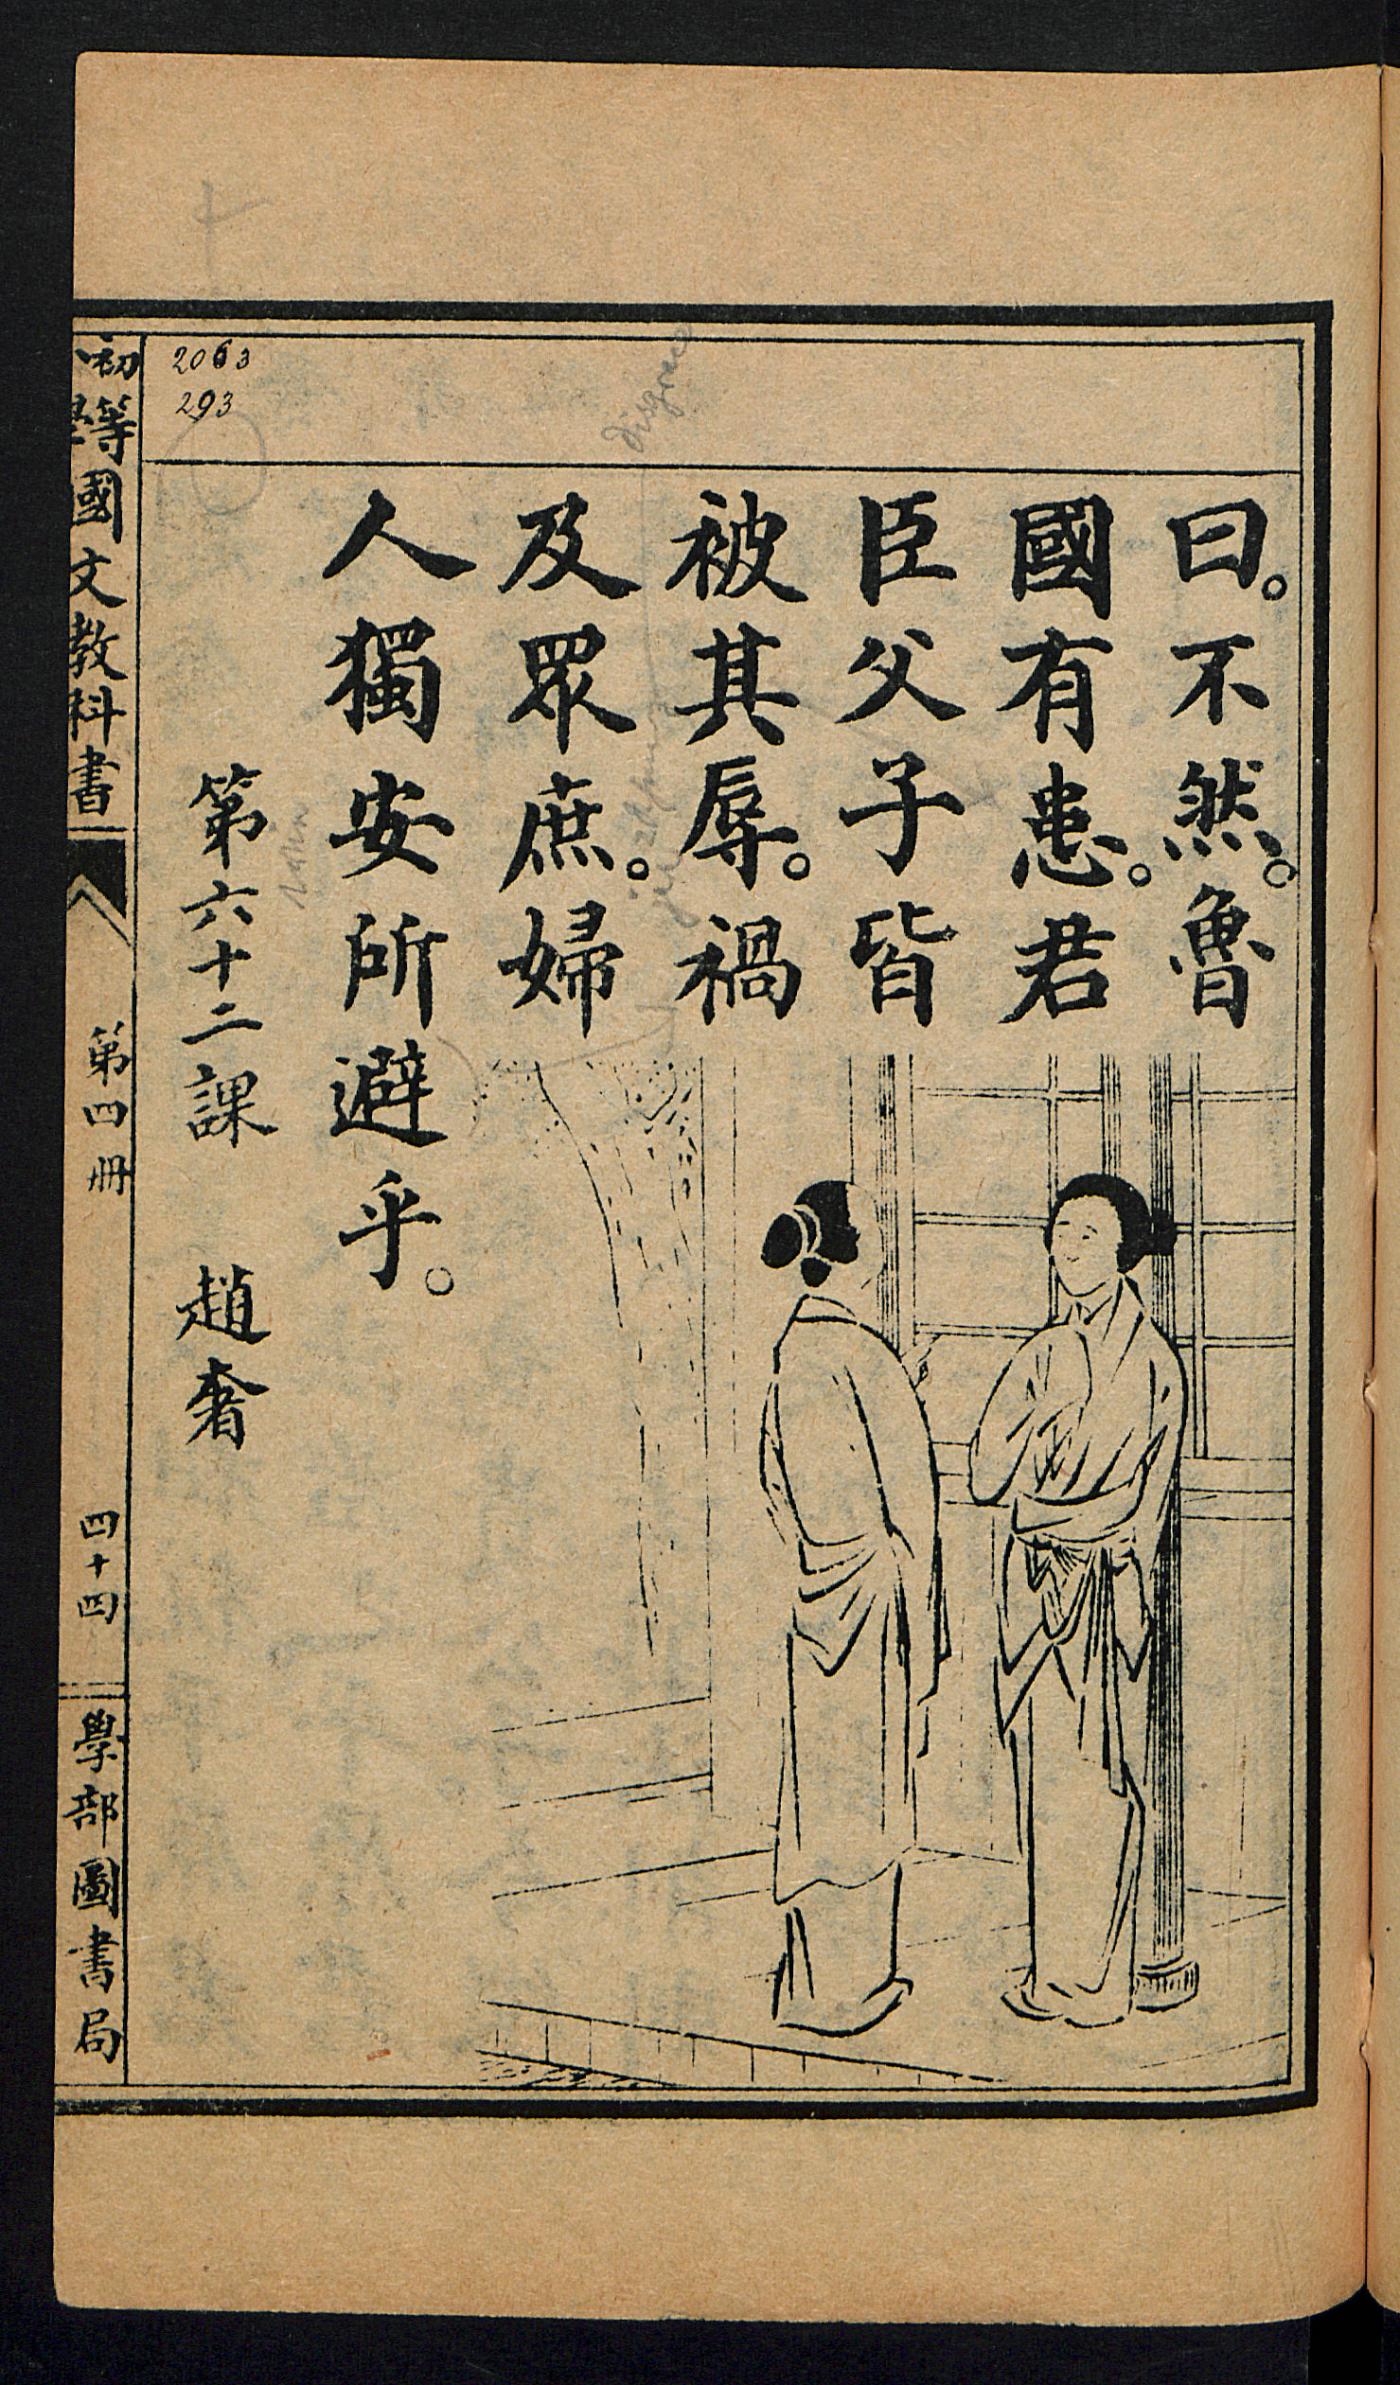 曰。不然。魯
國有患。君
臣父子皆
被其辱。禍
及眾庶。婦
人獨安所避乎。
第六十二課 趙奢
2063
293
disgrace
初等
國文教科書
第四冊
四十四
學部圖書局